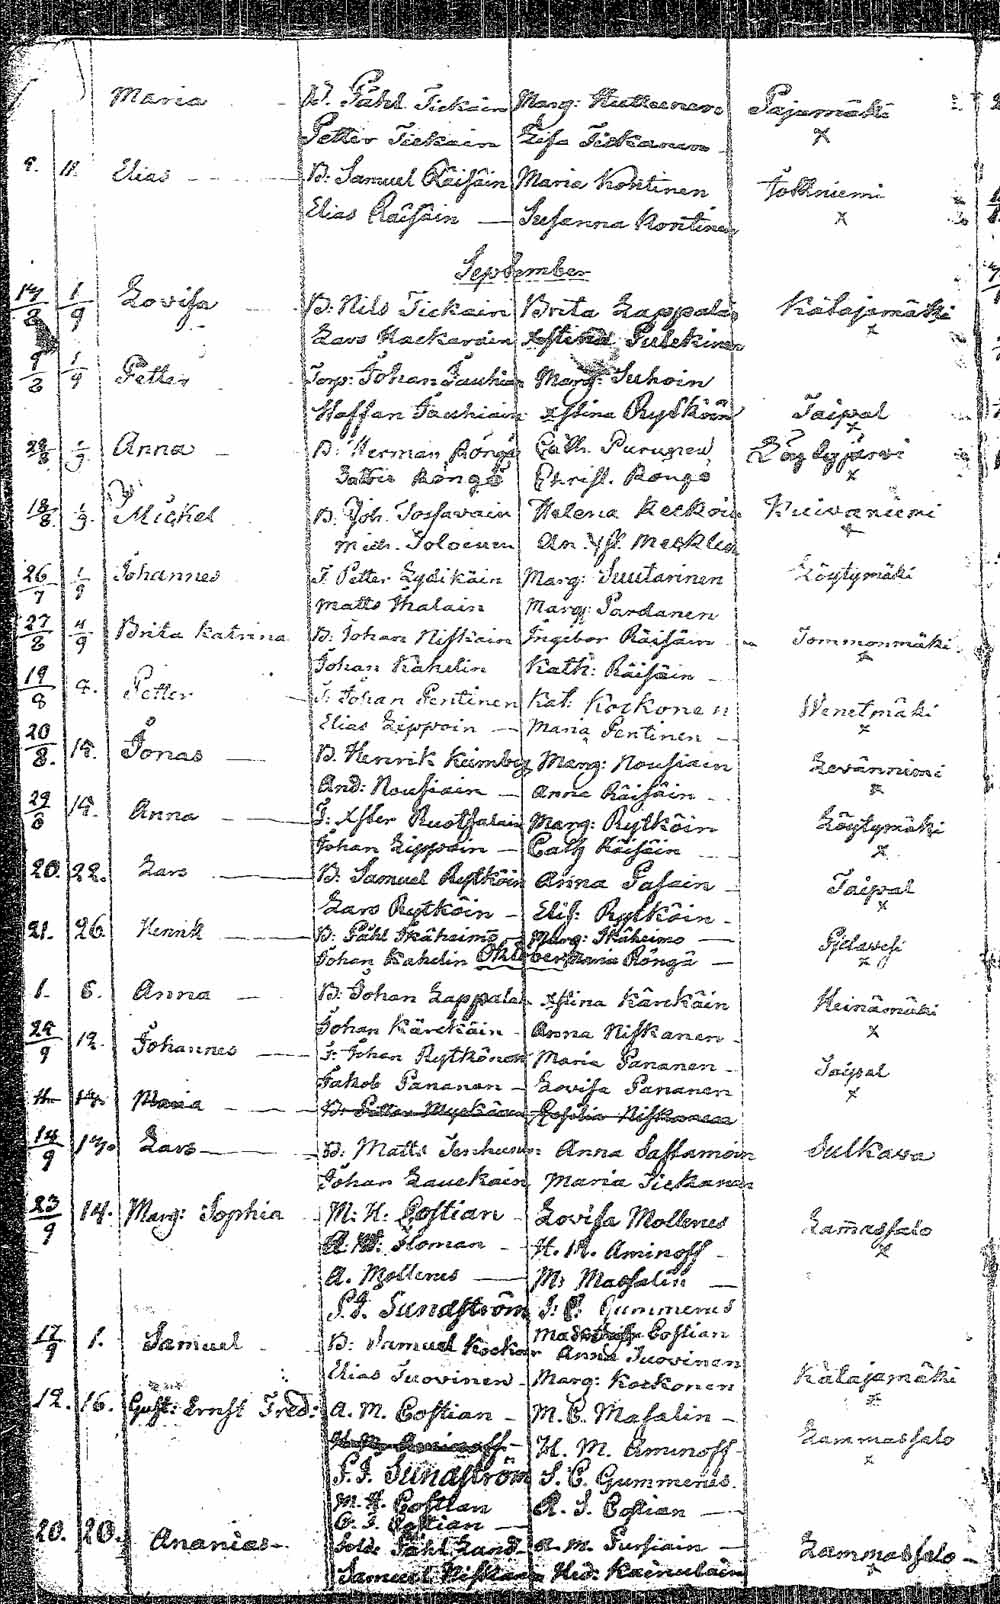 Maria B. Påhl Tickain Marg: Huttunen Pajumäki
Petter Tickain Lisa Tickanen x
9. 11. Elias B: Samuel Räisäin Maria Kontinen
Elias Räisäin Susanna Kontinen x
September
14/8 1/9 Lovisa B: Nils Tickain Brita Lappalain Kålajamäki
Lars Kackarain Xstina Pulckinen x
9/8 1/9 Petter Torp: Johan Jauhiain Marg: Suhoin
Staffan Jauhiain Xstina Rytköin Taipal x
28/8 1/9 Anna B: Herman Röngö Cath. Puruinen Löytyjärvi
Röngö Christ. Rongö x
18/8 1/9 Mickel B. Joh. Tossavain Helena Keckoin Kuivaniemi
Mich. Toloinen x
26/7 1/9 Johannes T. Petter Lydikäin Marg: Suutarinen Löytymäki
Matts Ihalain Marg: Pardanen
27/8 4/9 Brita Katrina B: Johan Niskain Ingebor Räisäin Tommonmäki
Johan Kahelin Kath: Räisäin x
19/8 9. Petter T: Johan Pentinen Kat: Kockonen Wenetmäki
Elias Lippoin Maria Pentinen x
20/8. 14. Jonas B. Henrik Keinberg Marg: Nousiain Levänniemi
And: Nousiain Anna Räisäin x
29/8 14. Anna T: Xster Ruotsalain Marg: Rytköin Löytymäki
Johan Lippoin Cath Räisäin x
20. 22. Lars B. Samuel Rytköin Anna Pasain Taipal
Lars Rytköin Elis: Rytköin x
21. 26. Henrik B: Påhl Ikäheimo Marg: Ikäheimo Pjelavesi
Johan Kahelin Maria Röngä x
Oktober
1. 6. Anna B: Johan Lappalain Xstina Kärckäin Heinämäki
Johan Kärckäin Anna Niskanen x
24/9 12. Johannes T: Johan Rytkönen Maria Pananen Taipal
Jakob Pananen Lovisa Pananen x
11. 14. Maria B: Petter Myckäin Cesilia Niskanen
14/9 14. Lars B: Matts Tenhunen Anna Sassamoin Sulkava
Johan Lauckain Maria Tickanen
23/9 14. Marg: Sophia M: H: Costian Lovisa Mollerus Lammassalo
Floman H. M. Aminoff x
A. Mollerus M: Massalin
P.J. Sundström J: C: Gummerus
Costian
17/9 1. Samuel B: Samuel Kockoin Anna Tuovinen
Elias Tuovinen Marg: Kockonen Kålajamäki x
12. 16. Gust: Ernst Fred: A. M. Costian M. C. Masalin
H. M. Aminoff H. M. Aminoff Lammassalo x
P.J. Sundström J. C. Gummerus.
M. H. Costian A. S. Costian
C. J. Costian
20. 20. Ananias Sold: Påhl Lund A. M. Pursiain Lammassalo
Samuel Niskanen Hed: Kainulain x